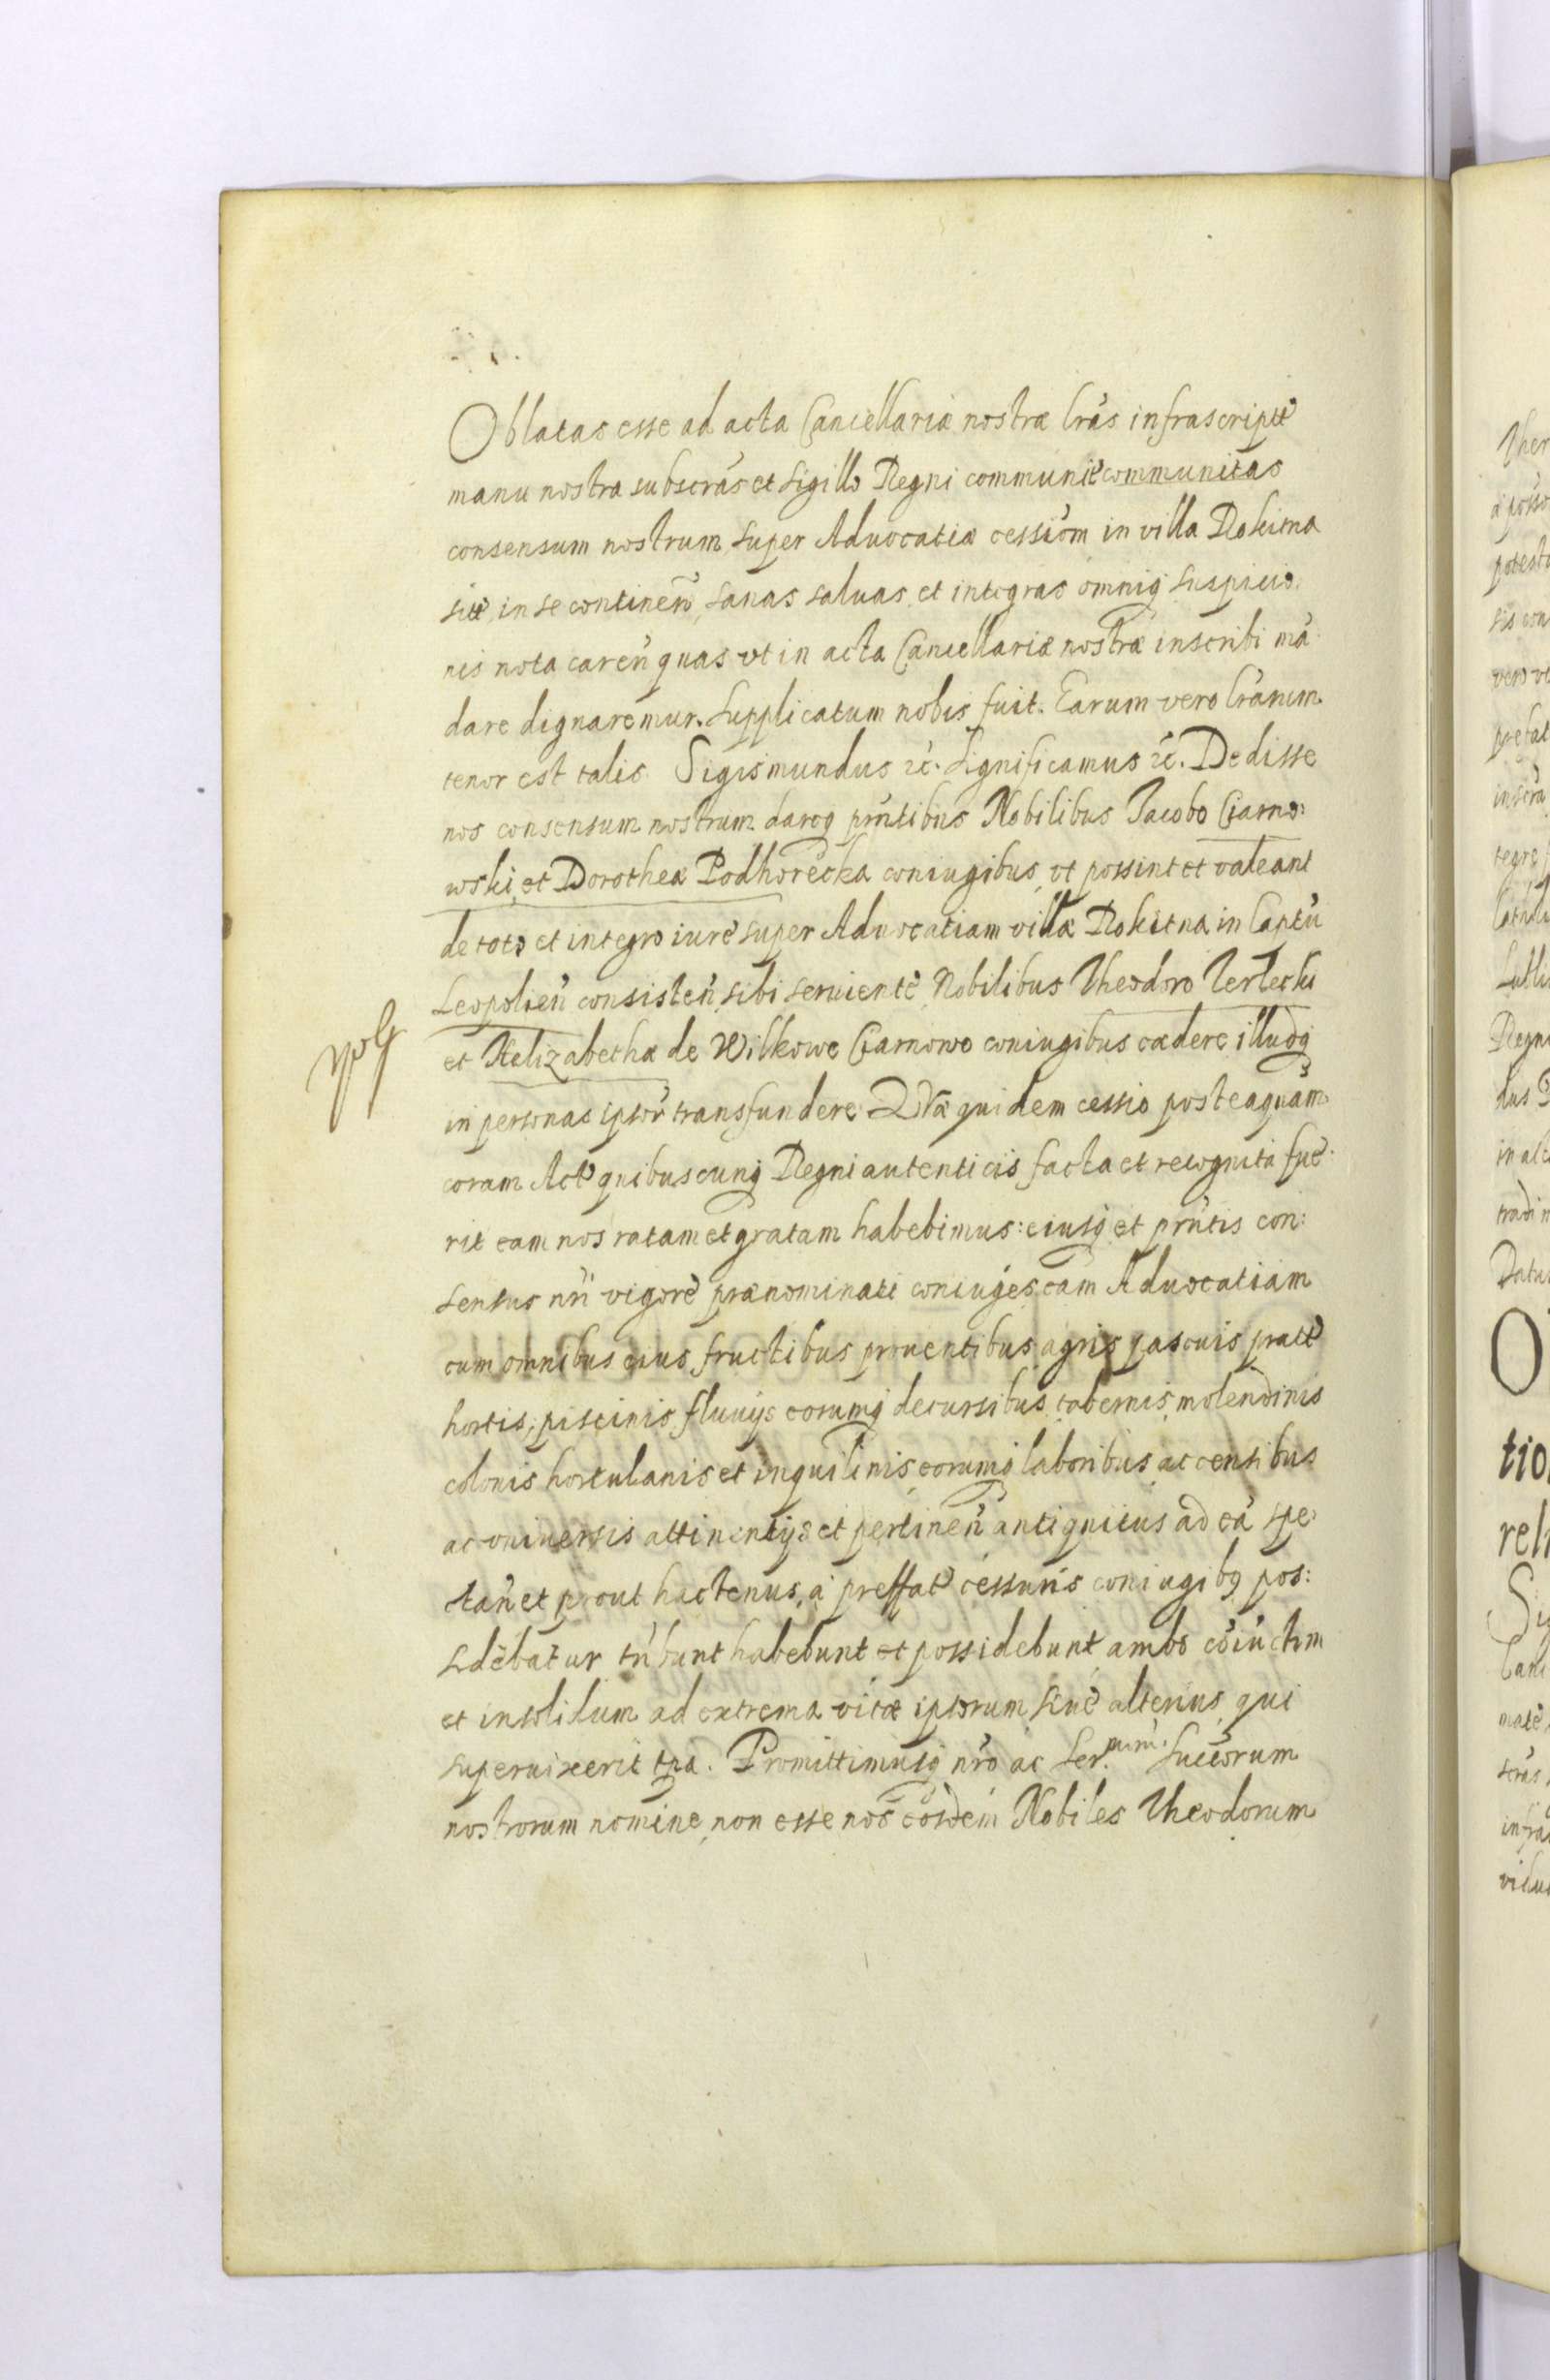 Oblatas esse ad acta Cancellariæ nostræ lrás infrascriptĕ
manu nostra subscrás et Sigillo Regni communiĕ communitas
consensum nostrum super Aduocatiæ cessiom in villa Rokitna
sitĕ in se continen̄, sanas saluas et integras omniq suspicio
nis nota caren̄ quas vt in acta Cancellariæ nostræ inscribi mā
dare dignaremur. Supplicatum nobis fuit. Earum vero lrarum
tenor est talis. Sigismundus ꝛc. Significamus ꝛc. Dedisse
nos consensum nostrum dareq prńtibus Nobilibus Jacobo Czarno:
wski et Dorotheæ Podhorecka coniugibus, vt possint et valeant
de toto et integro iure super Aduocatiam villæ Rokitna in Captŭ
Leopolien̄ consisten̄, sibi seruientĕ Nobilibus Theodoro Terlecki
et Helizabethæ de Wilkowo Czarnowo coniugibus cædere illudq
in personas ipsor̄ transfundere. Quæ quidem cessio posteaquam
coram Actĕ quibuscunq Regni autenticis facta et recognita fuĕ
rit eam nos ratam et gratam habebimus: eiusq et prńtis con:
sensus nr̄i vigore prænominati coniuges eam Aduocatiam
cum omnibus eius fructibus prouentibus agris pascuis pratĕ
hortis, piscinis fluuijs eorumq decursibus tabernis, molendinis
colonis hortulanis et inquilinis eorumq laboribus ac censibus
ac vniuersis attinentijs et pertinen̄ antiquitus ad eā spe
ctan̄ et prout hactenus, à preffatĕ cessuris coniugibq pos:
sidebatur tn̄bunt habebunt et possidebunt ambo cōiūctim
et insolidum ad extrema vitæ ipsorum siue alterius, qui
superuixerit tp̄a. Promittimusq nro ac Ser.mim. Succorum
nostrorum nomine, non esse nos eosdem Nobiles Theodorum